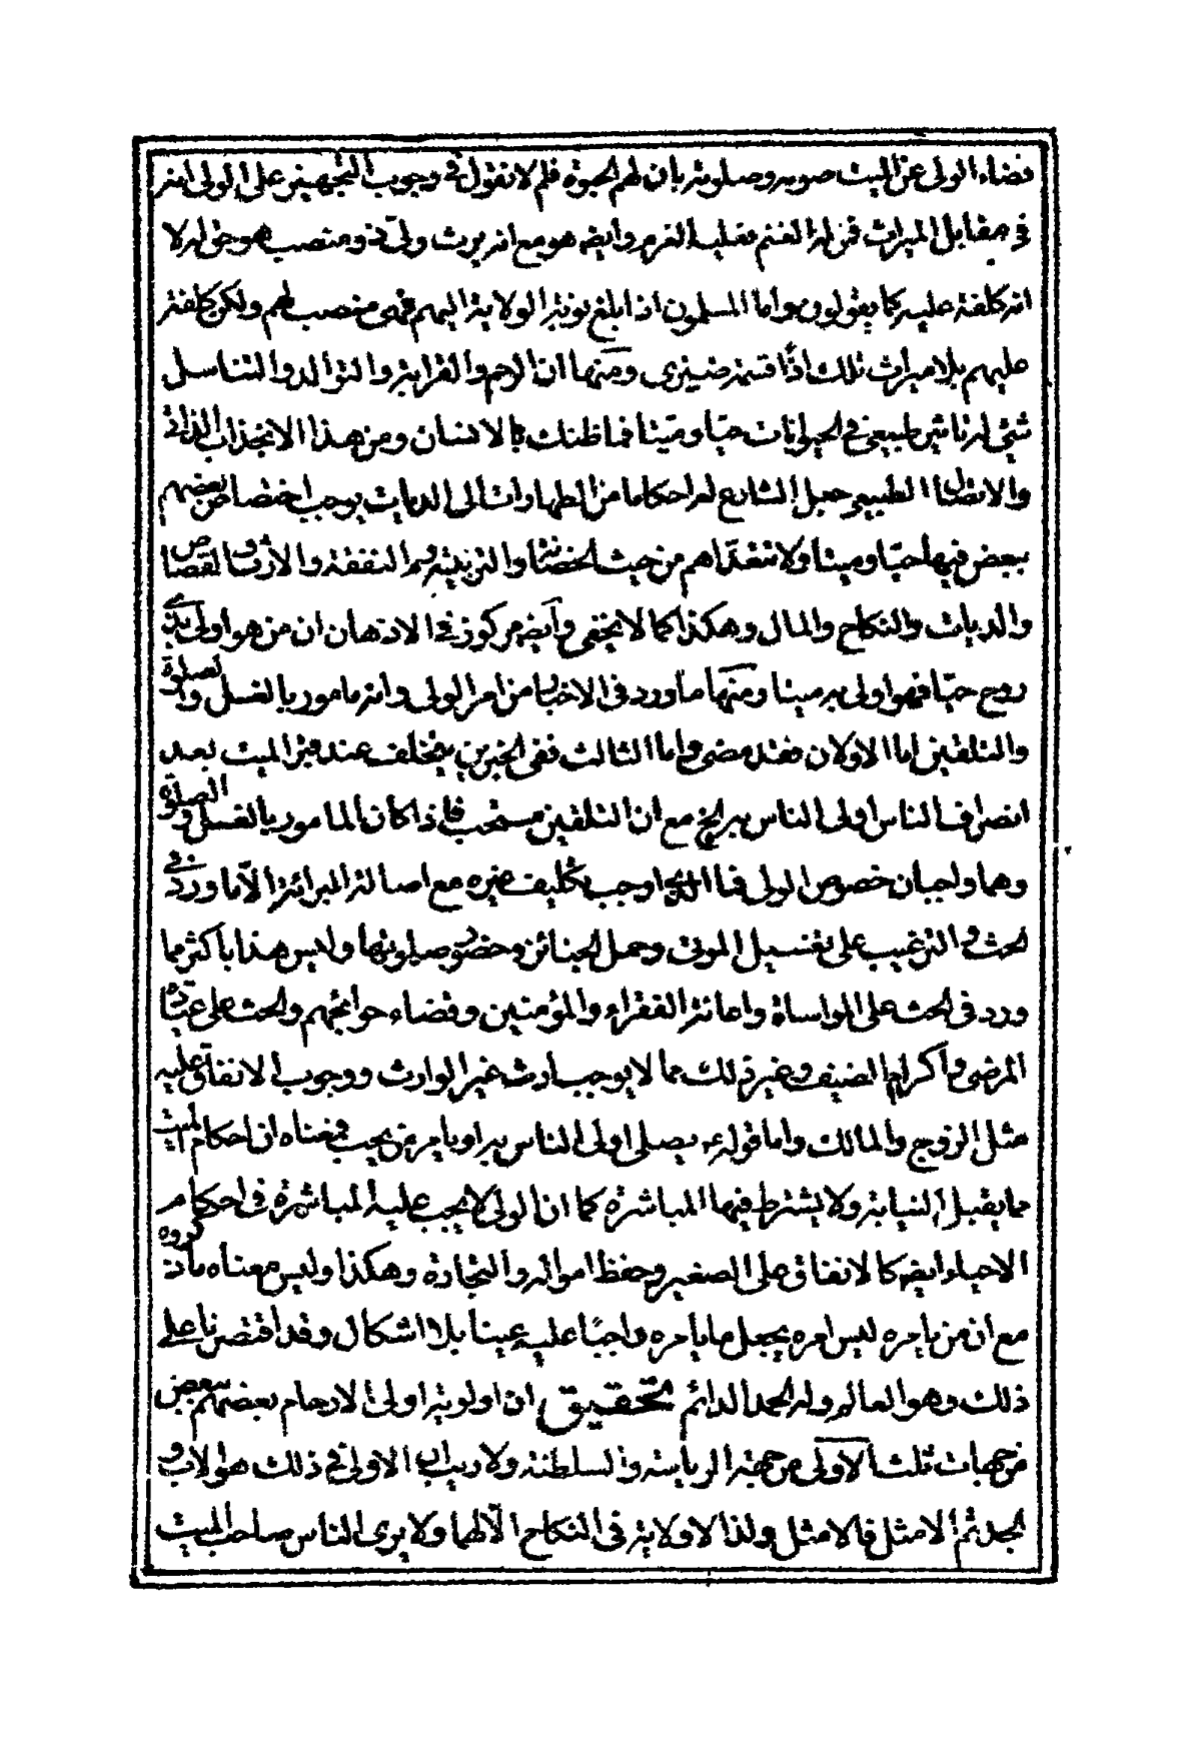 قضاء الولي عن الميت صومه وصلوته بان لهم الحبوة فلم لا نقول في وجوب التجهيز على الولي انه
في مقابل الميراث فمن له الغنم فعليه الغرم وايضه هو مع انه يرث ولى تـ ومنصب هو حق له لا
انه كلفة عليه كما يقولون واما المسلمون اذا بلغ نوبة الولاية اليهم فهى منصب لهم ولكن كلفة
عليهم بلا ميراث تلك اذًا قسمة ضيزى ومنها ان الرحم والقرابة والتوالد والتناسل
شئ له تاثير طبيعى في الحيوانات حيّا وميّتا فما ظنك بالانسان ومن هذا الانجذاب الذاتى
والانضمام الطبيعى جعل الشارع له احكاما من الطهارات الى الديات يوجب اختصاص بعضهم
ببعض فيها حيّا وميتا ولا تتعدّاهم من حيث الحضانة والتربية والنفقة والارث والقصاص
والديات والنكاح والمال وهكذا كما لا يخفى وايضه مركوز في الاذهان ان من هو اولى بذى
روح حيّا فهو اولى به ميتا ومنها ما ورد في الاخبار من امر الولى وانه مامور بالغسل والصلوة
والتلقين اما الاولان فقد مضى واما الثالث ففى الخبرين يتخلف عند قبر الميت بعد
انصراف الناس اولى الناس به الخ مع ان التلقين مستحب فاذا كان المامور بالغسل والصلوة
وهما واجبان خصوص الولى فما الذى اوجب تكليف غيره مع اصالة البرائة الّا ما ورد في
الحث والترغيب على تغسيل الموتى وحمل الجنائز وحضور صلوتها وليس هذا باكثر مما
ورد في الحث على المواساة واعانة الفقراء والمؤمنين وقضاء حوائجهم والحث على عيادة
المرضى واكرام الضيف وغير ذلك مما لا يوجب ارث غير الوارث ووجوب الانفاق عليه
مثل الزوج والمالك واما قوله ع يصلى اولى الناس به او يامر من يحب فمعناه ان احكام الميت
مما يقبل النيابة ولا يشترط فيها المباشرة كما ان الولى لا يجب عليه المباشرة في احكام
الاحياء ايضه كالانفاق على الصغير وحفظ امواله والتجارة وهكذا وليس معناه ما ذكروه
مع ان من يامره ليس امره يجعل ما يامره واجبًا عليه عينا بلا اشكال وقد اقتصرنا على
ذلك وهو العالم وله الحمد الدائم تحقيق ان اولوية اولى الارحام بعضهم ببعض
من جهات ثلث الاولى من جهة الرياسة والسلطنة ولا ريب ان الاولى في ذلك هو الاب و
الجد ثم الامثل فالامثل ولذا لا ولاية في النكاح الّا لهما ولا يرى الناس صاحب الميت